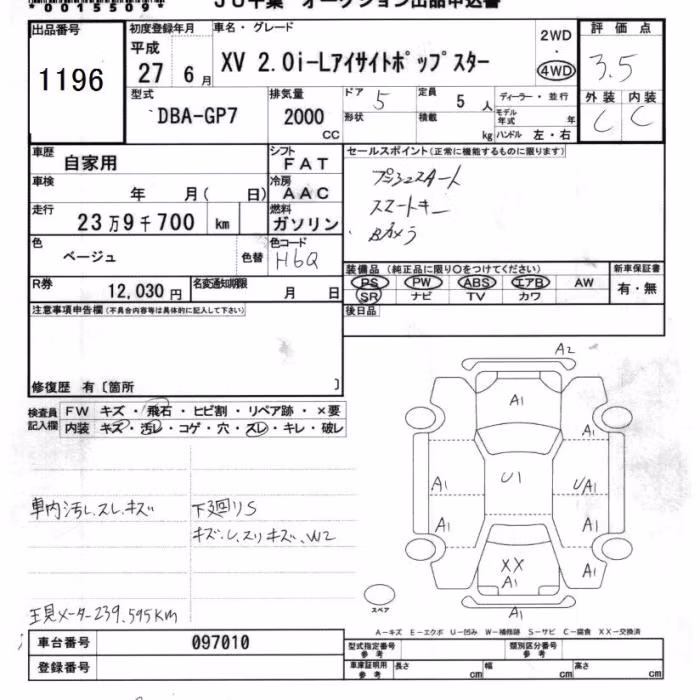 *00155091*
JU千葉 オークション出品申込書
出品番号
1196
初度登録年月
平成
27 6月
車名・グレード
XV 2.0i-Lアイサイトポップスター
2WD
4WD
評価点
3.5
外装 内装
C C
型式
DBA-GP7
排気量
2000
CC
ドア
5
定員
5 人
ディーラー・並行
モデル年式 年
形状
積載
kg
ハンドル 左・右
車歴
自家用
シフト
FAT
車検
年 月( 日)
冷房
AAC
走行
23万9千700 km
燃料
ガソリン
色
ベージュ
色替
色コード
H6Q
R券
12,030円
名変通知期限
月 日
セールスポイント(正常に機能するものに限ります)
プッシュスタート
スマートキー
Bカメラ
装備品(純正品に限り○をつけてください)
PS PW ABS エアB AW
SR ナビ TV カワ
新車保証書
有・無
後日品
注意事項申告欄(不具合内容等は具体的に記入して下さい)
修復歴 有〔箇所 〕
検査員記入欄
FW キズ・飛石・ヒビ割・リペア跡・×要
内装 キズ・汚レ・コゲ・穴・スレ・キレ・破レ
車内汚レ、スレ、キズ
下廻リS
キズ、レ、スリキズ、W2
現メーター239,595Km
A2
A1
A1
U1
UA1
A1
A1
XX
A1
A1
A1
スペア
A－キズ E－エクボ U－凹み W－補修跡 S－サビ C－腐食 XX－交換済
車台番号
097010
登録番号
型式指定番号
参考
類別区分番号
参考
車庫証明用
参考
長さ cm
幅 cm
高さ cm